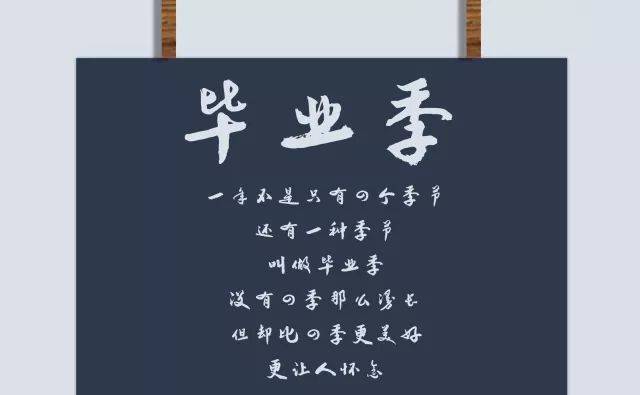 毕业季
一年不是只有四个季节
还有一种季节
叫做毕业季
没有四季那么漫长
但却比四季更美好
更让人怀念